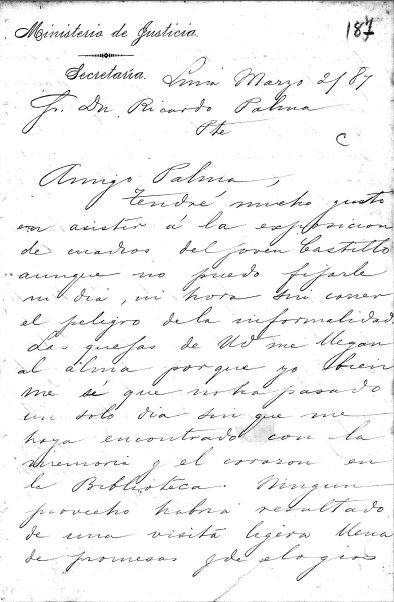 Ministerio de Justicia.
187
Secretaría.
Lima Marzo 2/87
Sr. Dn. Ricardo Palma
Pte
C
Amigo Palma,
Tendré mucho gusto
en asistir á la exposicion
de cuadros del joven Castillo
aunque no puedo fijarle
ni dia, ni hora sin correr
el peligro de la informalidad.
Las quejas de Ud me llegan
al alma porque yo bien
me sé que no ha pasado
un solo dia sin que me
haya encontrado con la
memoria y el corazon en
la Biblioteca. Ningun
provecho habria resultado
de una visita ligera llena
de promesas y de elogios